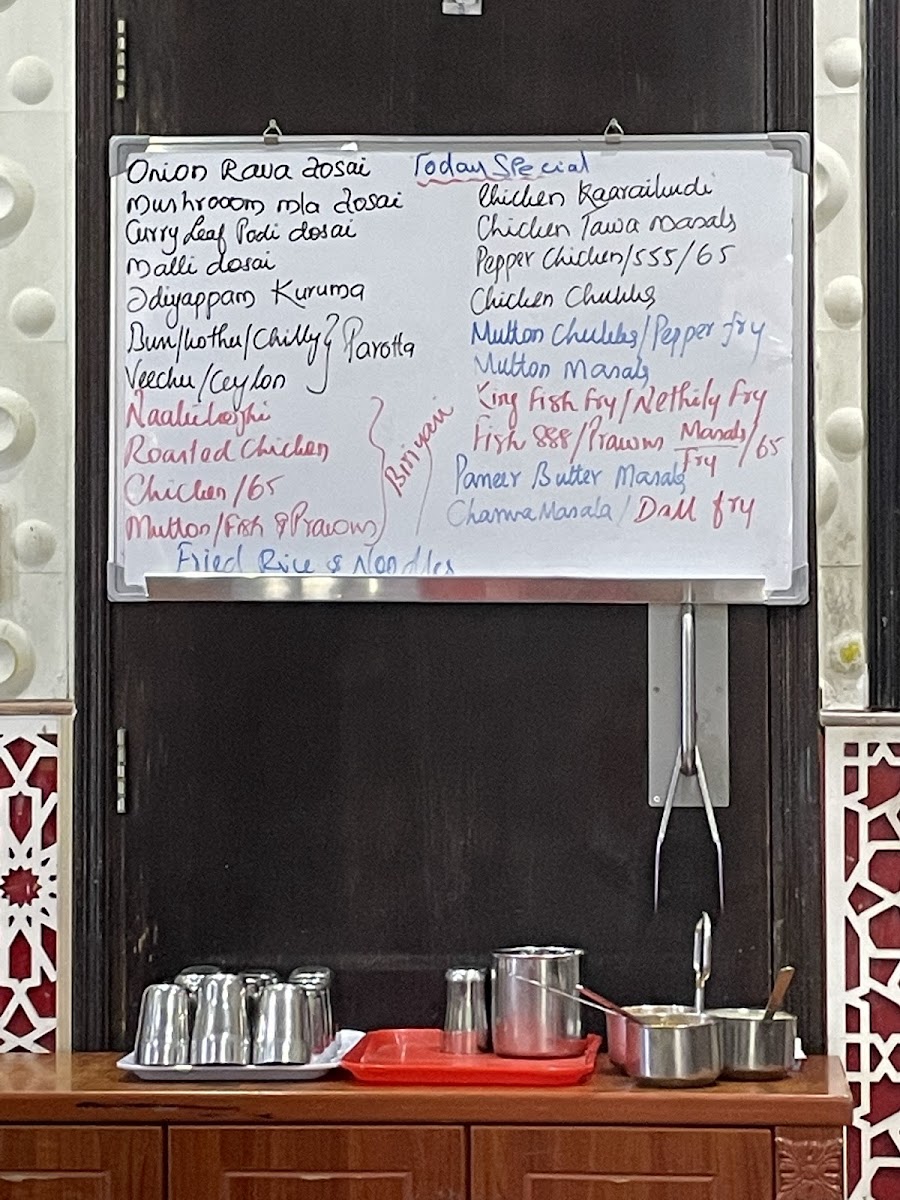 Onion Rava dosai
Mushrooom mla dosai
Curry Leaf Podi dosai
Malli dosai
Idiyappam Kuruma
Bun/Kothu/Chilly
Veechu/Ceylon
Parotta
Roasted Chicken
Chicken/65
Mutton/Fish & Prawns
Biriyani
Fried Rice & Noodles
Today Special
Chicken Kaaraikudi
Chicken Tawa Masala
Pepper Chicken/555/65
Chicken Chukks
Mutton Chukks/Pepper fry
Mutton Masala
King Fish Fry/Nethily Fry
Fish 888/Prawns Masala/Fry/65
Paneer Butter Masala
Channa Masala/Dall fry